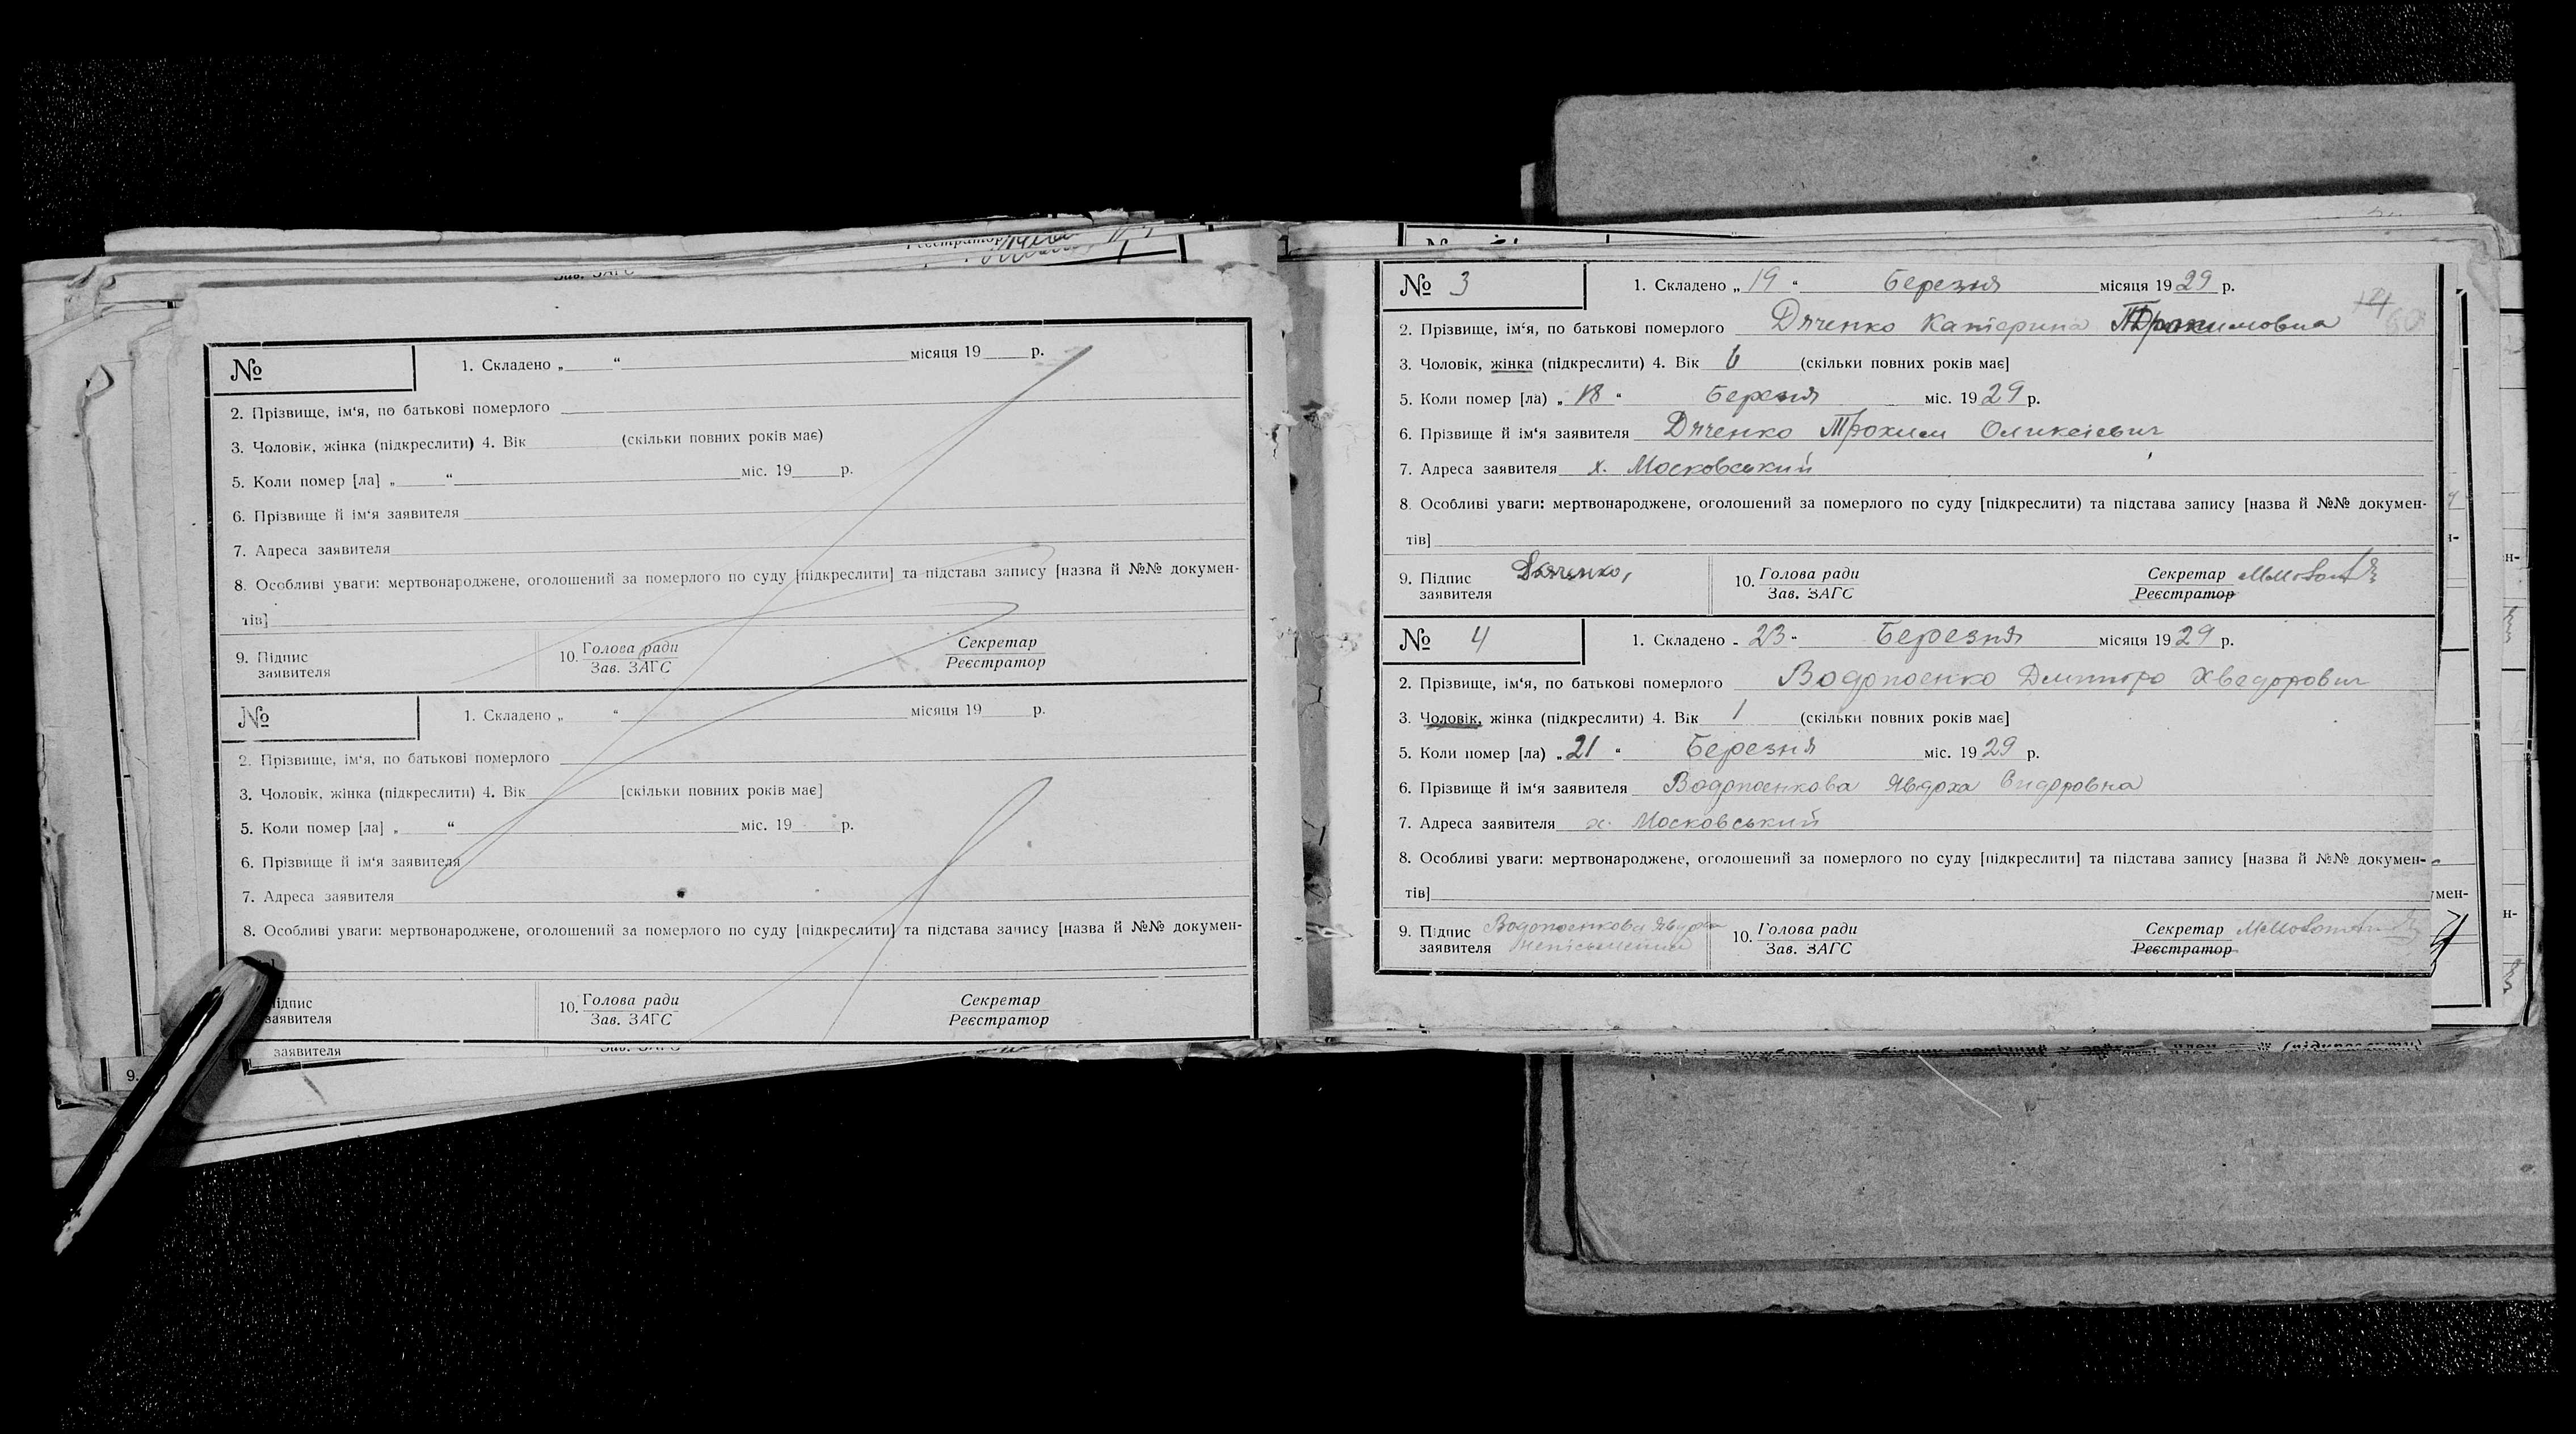 №
1. Складено „ “ місяця 19 р.
2. Прізвище, ім‘я, по батькові померлого
3. Чоловік, жінка (підкреслити) 4. Вік (скільки повних років має)
5. Коли помер [ла] „ “ міс. 19 р.
6. Прізвище й ім‘я заявителя
7. Адреса заявителя
8. Особливі уваги: мертвонароджене, оголошений за померлого по суду [підкреслити] та підстава запису [назва й №№ докумен-
тів]
9. Підпис заявителя 10. Голова ради Зав. ЗАГС Секретар Реєстратор
№
1. Складено „ “ місяця 19 р.
2. Прізвище, ім‘я, по батькові померлого
3. Чоловік, жінка (підкреслити) 4. Вік [скільки повних років має]
5. Коли помер [ла] „ “ міс. 19 р.
6. Прізвище й ім‘я заявителя
7. Адреса заявителя
8. Особливі уваги: мертвонароджене, оголошений за померлого по суду [підкреслити] та підстава запису [назва й №№ докумен-
ідпис заявителя 10. Голова ради Зав. ЗАГС Секретар Реєстратор
заявителя
9.
№ 3
1. Складено „19“ Березня місяця 1929 р.
2. Прізвище, ім‘я, по батькові померлого Дяченко Катерина Трохимовна
3. Чоловік, жінка (підкреслити) 4. Вік 6 (скільки повних років має]
5. Коли помер [ла) „18“ Березня міс. 1929 р.
6. Прізвище й ім‘я заявителя Дяченко Трохим Оликсієвич
7. Адреса заявителя х. Московський
8. Особливі уваги: мертвонароджене, оголошений за померлого по суду [підкреслити) та підстава запису [назва й №№ докумен-
тів]
9. Підпис заявителя Дяченко, 10. Голова ради Зав. ЗАГС Секретар Реєстратор
№ 4
1. Складено „23“ Березня місяця 1929 р.
2. Прізвище, ім‘я, по батькові померлого Водопоенко Дмитро Хведорович
3. Чоловік, жінка (підкреслити) 4. Вік 1 (скільки повних років має]
5. Коли помер [ла) „21“ Березня міс. 1929 р.
6. Прізвище й ім‘я заявителя Водопоенкова Явдоха Сидоровна
7. Адреса заявителя х. Московський
8. Особливі уваги: мертвонароджене, оголошений за померлого по суду [підкреслити] та підстава запису [назва й №№ докумен-
тів]
9. Підпис заявителя Водопоенкова Явдоха неписьменна 10. Голова ради Зав. ЗАГС Секретар Реєстратор